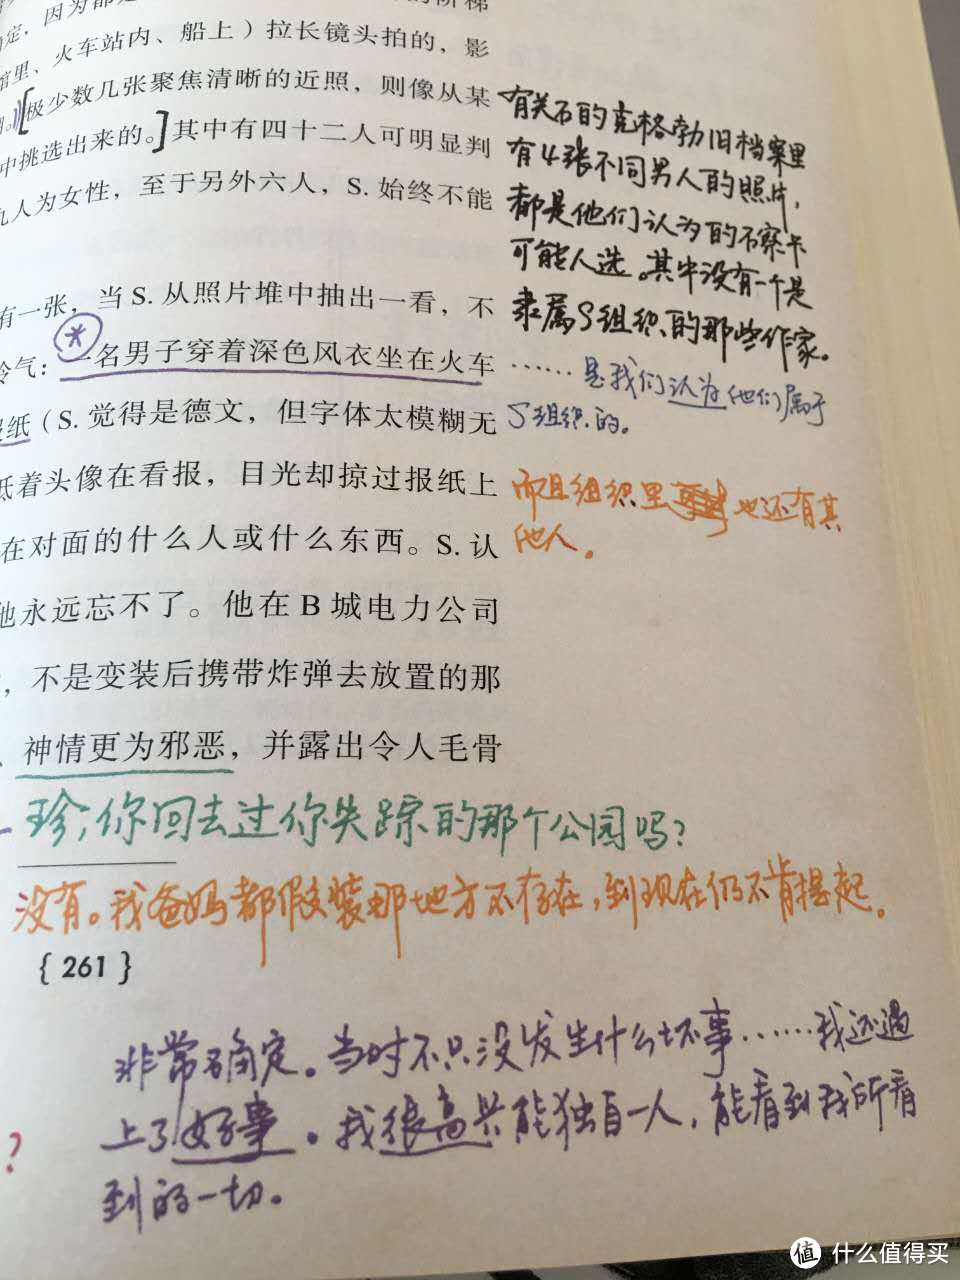 定，因为都是
馆里、火车站内、船上）拉长镜头拍的，影
极少数几张聚焦清晰的近照，则像从某
中挑选出来的。其中有四十二人可明显判
九人为女性，至于另外六人，S. 始终不能
有一张，当 S. 从照片堆中抽出一看，不
冷气：一名男子穿着深色风衣坐在火车
报纸（S. 觉得是德文，但字体太模糊无
低着头像在看报，目光却掠过报纸上
在对面的什么人或什么东西。S. 认
他永远忘不了。他在 B 城电力公司
，不是变装后携带炸弹去放置的那
神情更为邪恶，并露出令人毛骨
有关石的克格勃旧档案里
有4张不同男人的照片，
都是他们认为的石察卡
可能人选。其中没有一个是
隶属S组织的那些作家。
……是我们认为他们属于
S组织的。
而且组织里也还有其
他人。
珍，你回去过你失踪的那个公园吗？
没有。我爸妈都假装那地方不存在，到现在仍不肯提起。
{ 261 }
非常确定。当时不只没发生什么坏事……我还遇
上了好事。我很高兴能独自一人，能看到我所看
到的一切。
?
值 什么值得买